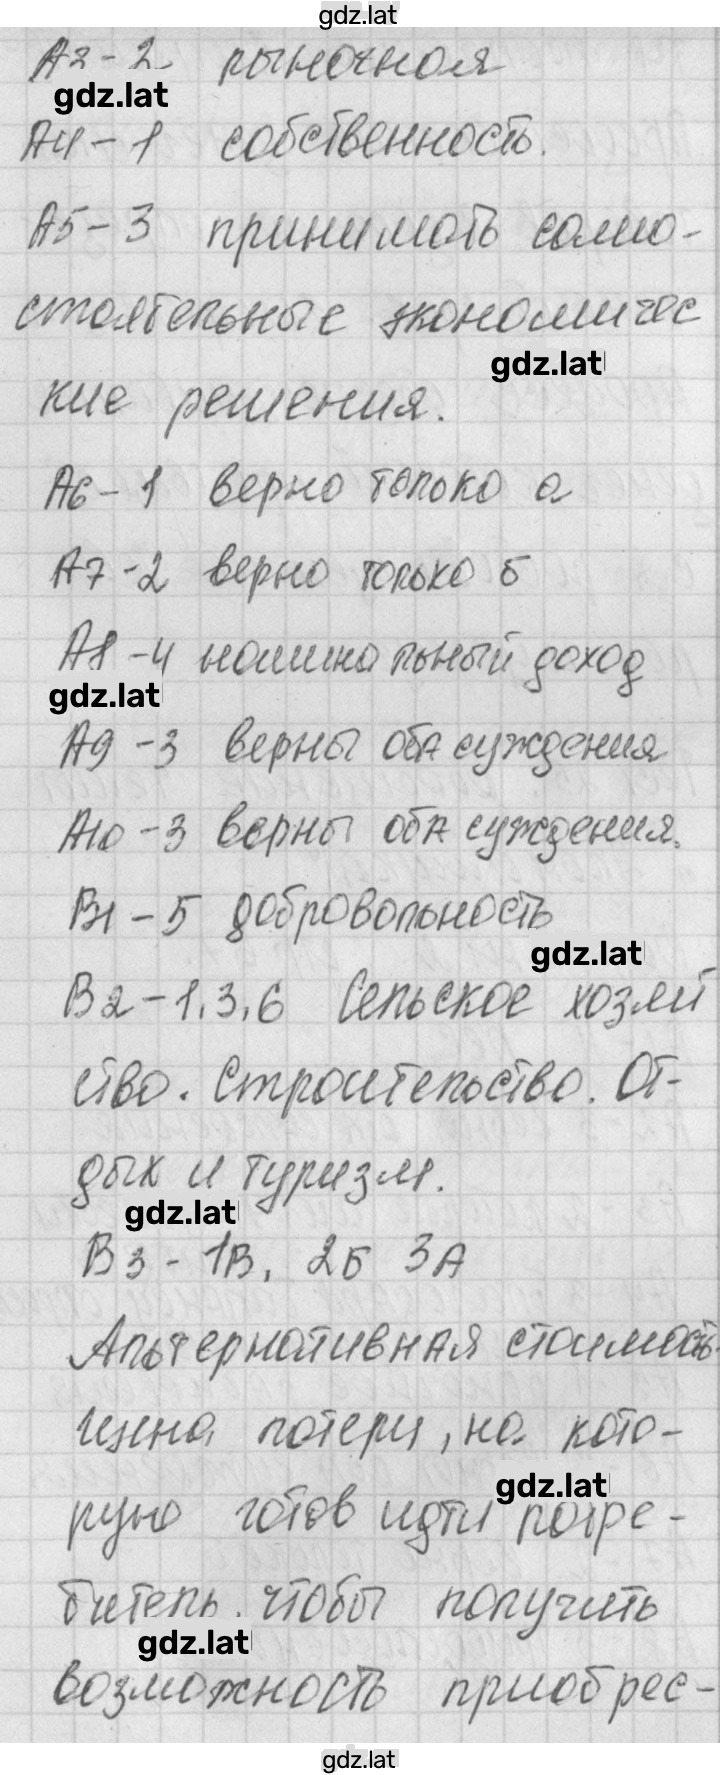 gdz.lat
А3-2 рыночная
gdz.lat
А4-1 собственность.
А5-3 принимать само-
стоятельные экономичес
gdz.lat
кие решения.
А6-1 верно только а
А7-2 верно только б
А8-4 номинальный доход
gdz.lat
А9-3 верны оба суждения
А10-3 верны оба суждения.
В1-5 добровольность
gdz.lat
В2-1,3,6 Сельское хозяй
ство. Строительство. От-
дых и туризм.
gdz.lat
В3-1В, 2Б 3А
Альтернативная стоимость-
цена потери, на кото-
gdz.lat
рую готов идти потре-
битель, чтобы получить
gdz.lat
возможность приобрес-
gdz.lat